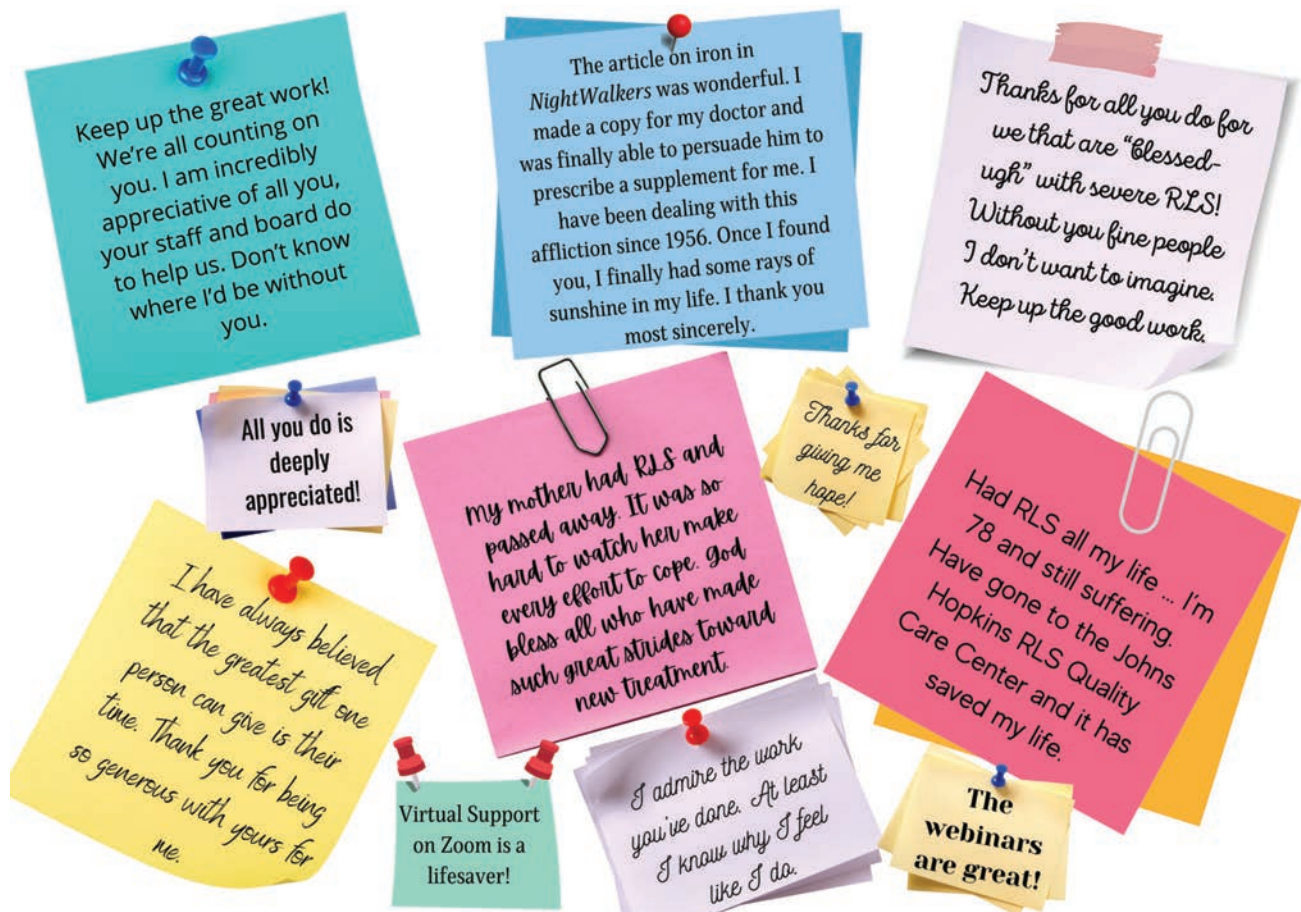 Keep up the great work!
We're all counting on
you. I am incredibly
appreciative of all you,
your staff and board do
to help us. Don't know
where I'd be without
you.
The article on iron in
NightWalkers was wonderful. I
made a copy for my doctor and
was finally able to persuade him to
prescribe a supplement for me. I
have been dealing with this
affliction since 1956. Once I found
you, I finally had some rays of
sunshine in my life. I thank you
most sincerely.
Thanks for all you do for
we that are “blessed-
ugh” with severe RLS!
Without you fine people
I don't want to imagine.
Keep up the good work.
All you do is
deeply
appreciated!
My mother had RLS and
passed away. It was so
hard to watch her make
every effort to cope. God
bless all who have made
such great strides toward
new treatment.
Thanks for
giving me
hope!
Had RLS all my life ... I'm
78 and still suffering.
Have gone to the Johns
Hopkins RLS Quality
Care Center and it has
saved my life.
I have always believed
that the greatest gift one
person can give is their
time. Thank you for being
so generous with yours for
me.
Virtual Support
on Zoom is a
lifesaver!
I admire the work
you've done. At least
I know why I feel
like I do.
The
webinars
are great!